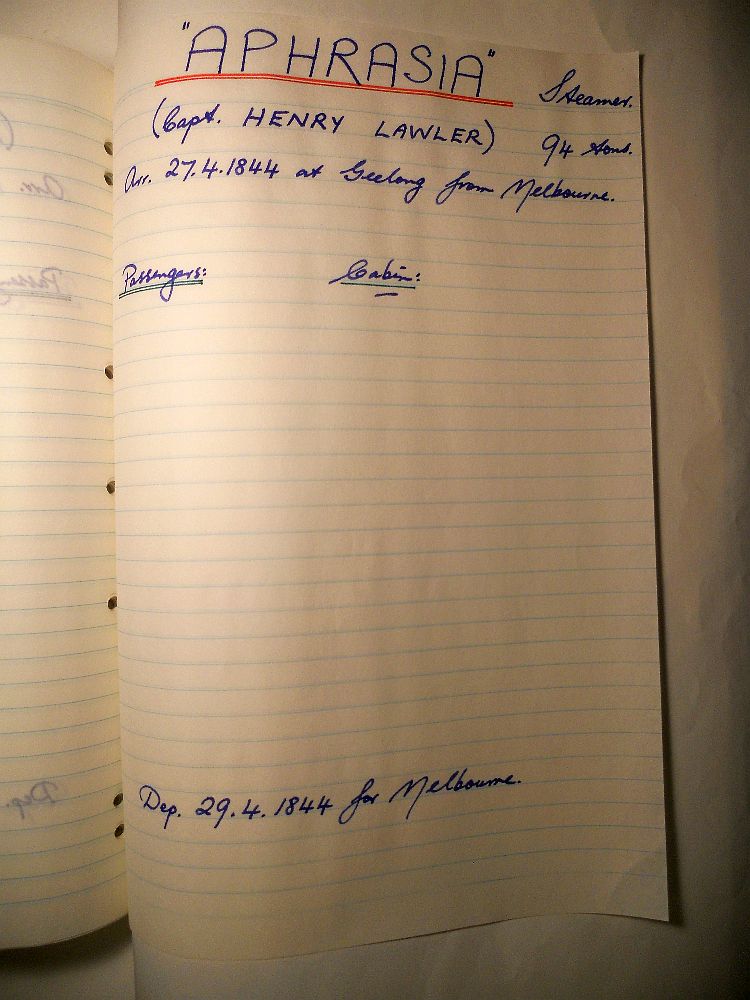 "APHRASIA" Steamer.
(Capt. HENRY LAWLER) 94 tons.
Arr. 27.4.1844 at Geelong from Melbourne.
Passengers: Cabin:
Dep. 29.4.1844 for Melbourne.